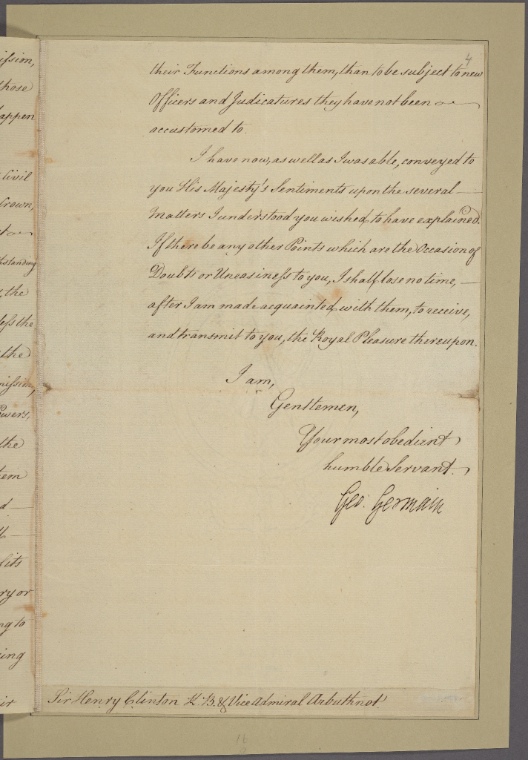 4
their Functions among them, than to be subject to new
Officers and Judicatures they have not been
accustomed to.
I have now, as well as I was able, conveyed to
you His Majesty's Sentiments upon the several
Matters I understood you wished to have explained.
If there be any other Points which are the Occasion of
Doubts or Uneasiness to you, I shall lose no time,
after I am made acquainted with them, to receive,
and transmit to you, the Royal Pleasure thereupon.
I am,
Gentlemen,
Your most obedient
humble Servant.
Geo. Germain
Sir Henry Clinton K.B. & Vice Admiral Arbuthnot
ission,
those
appen
Civil
Crown,
thstanding
the
less the
the
mission,
Powers
the
hem
fits
ry or
ng to
ing